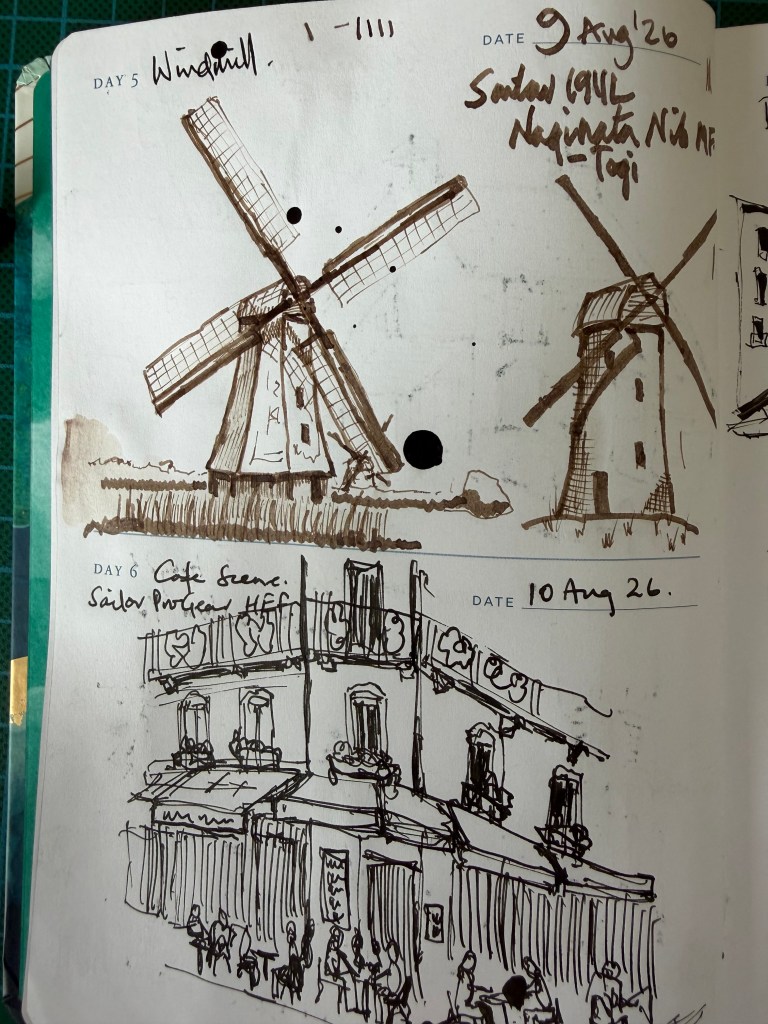 DAY 5 Windmill.
DATE 9 Aug '26
Naginata Nib MF
- Togi
DAY 6 Cafe Scene.
Sailor ProGear HEF
DATE 10 Aug 26.